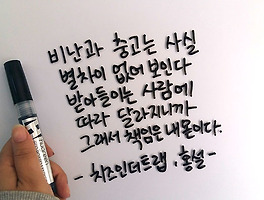 비난과 충고는 사실
별차이 없어 보인다
받아들이는 사람에
따라 달라지니까
그래서 책임은 내 몫이다.
- 치즈인더트랩, 홍설 -